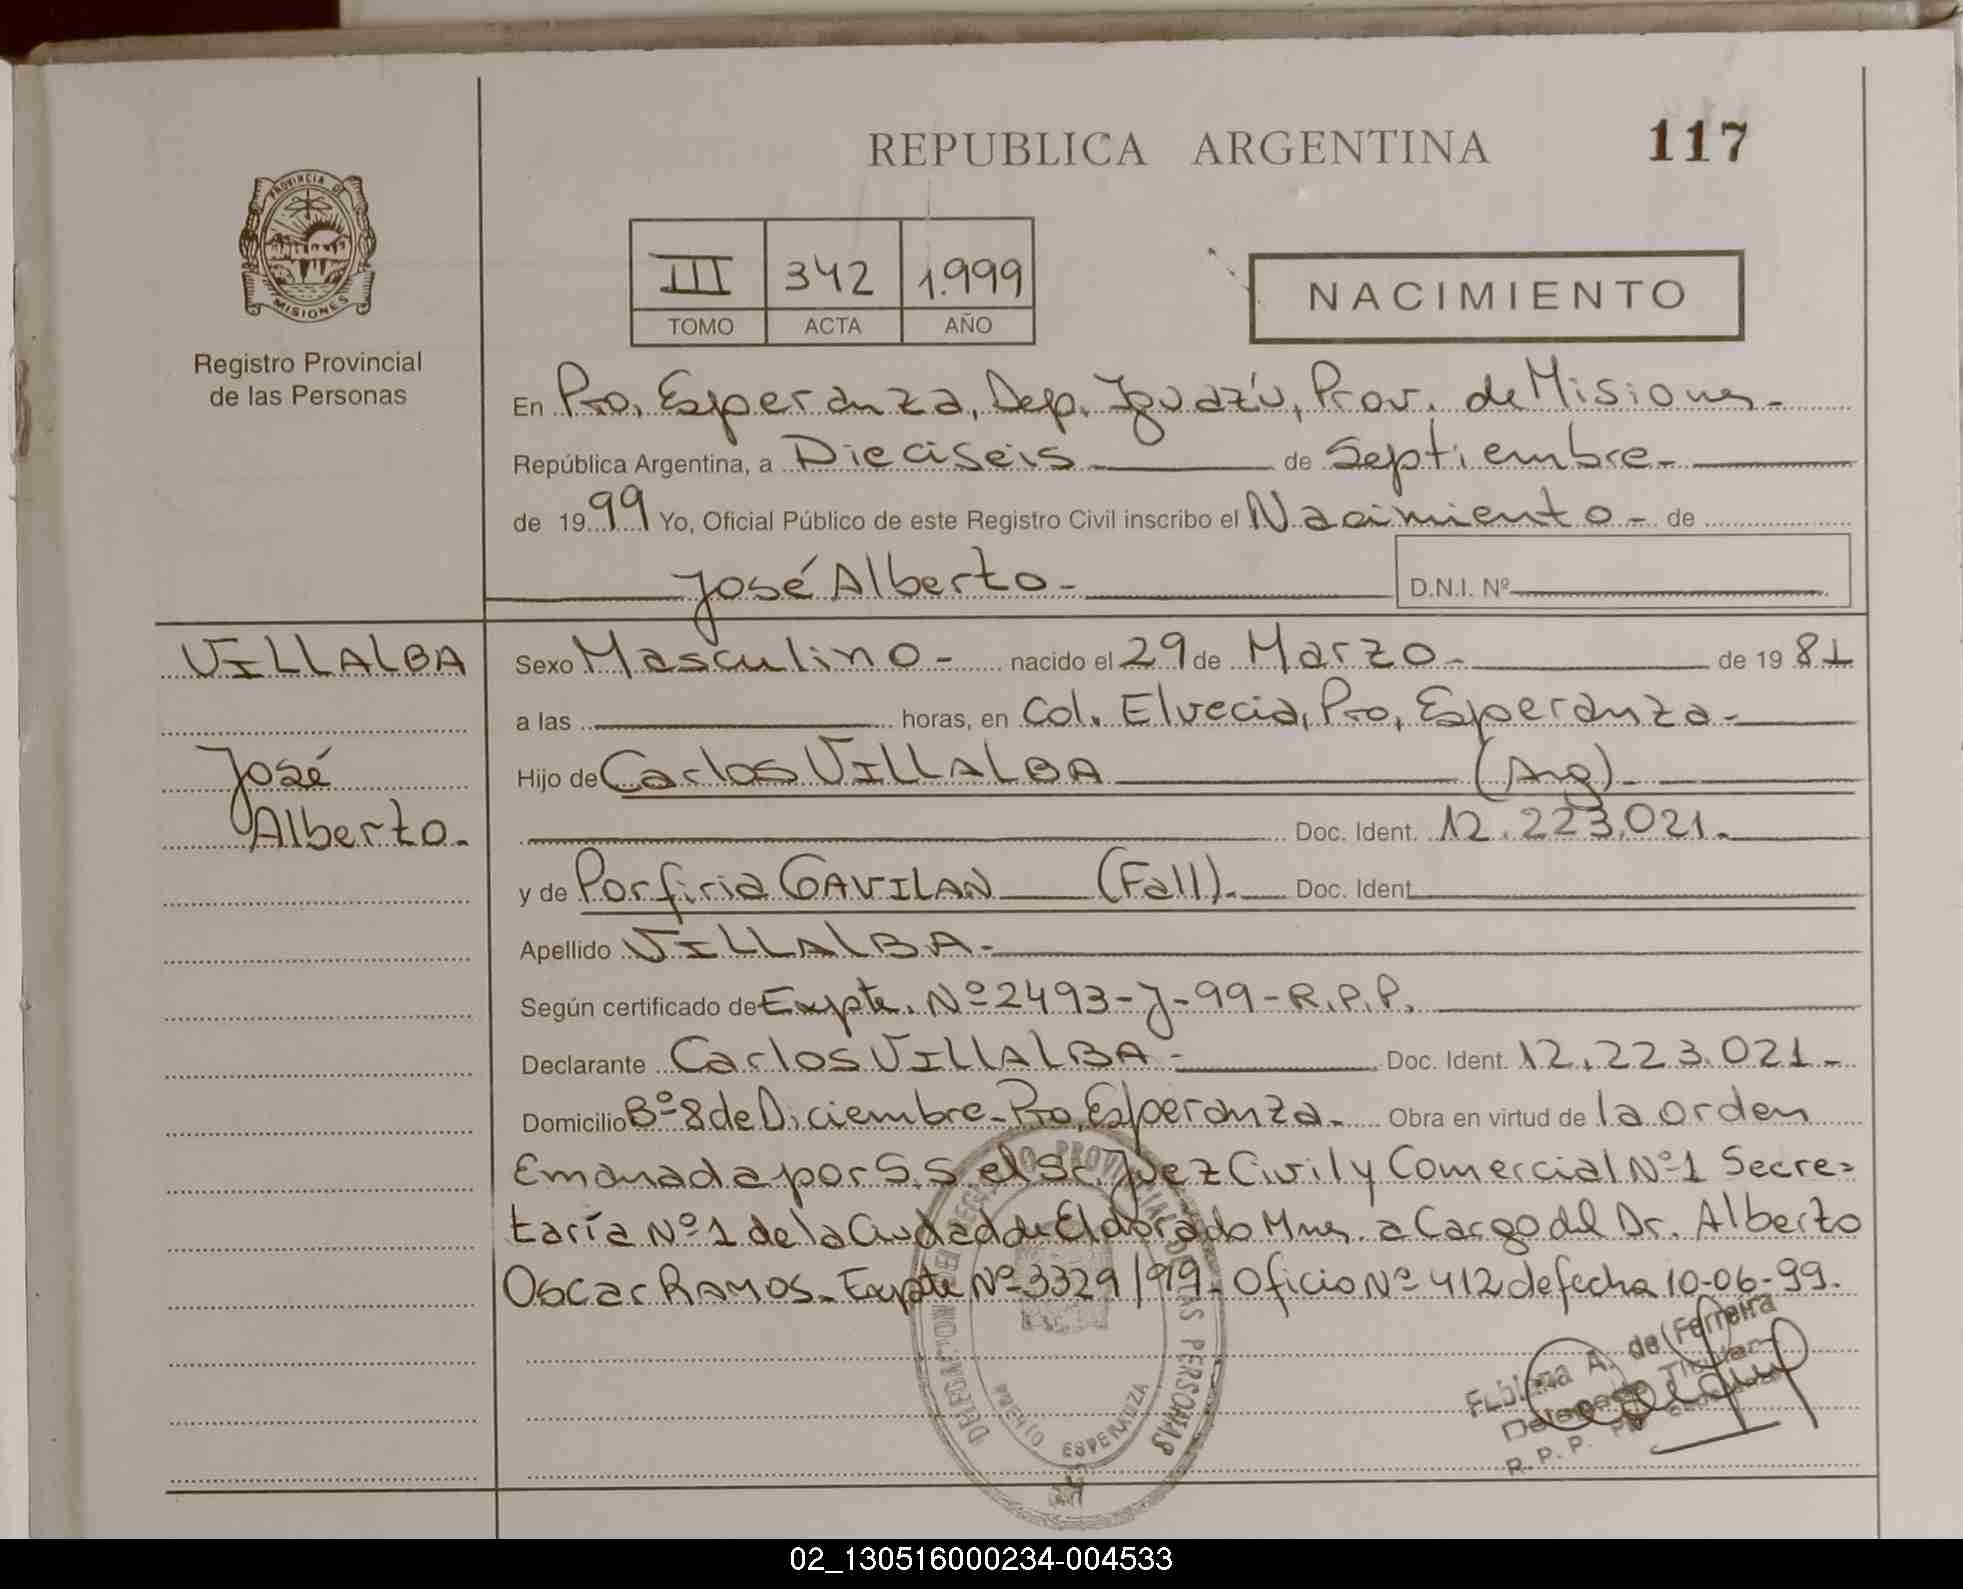 REPUBLICA ARGENTINA
117
PROVINCIA DE
MISIONES
Registro Provincial
de las Personas
III 342 1.999
TOMO ACTA AÑO
NACIMIENTO
En Pto. Esperanza, Dep. Iguazú, Prov. de Misiones.-
República Argentina, a Dieciseis de Septiembre.-
de 1999 Yo, Oficial Público de este Registro Civil inscribo el Nacimiento.- de
José Alberto.-
D.N.I. Nº
VILLALBA
José
Alberto.-
Sexo Masculino.- nacido el 29 de Marzo.- de 19 81
a las horas, en Col. Elvecia, Pto. Esperanza.-
Hijo de Carlos VILLALBA (Arg).-
Doc. Ident. 12.223.021.-
y de Porfiria GAVILAN (Fall).- Doc. Ident.
Apellido VILLALBA.-
Según certificado de Expte. Nº 2493-J-99-R.P.P.
Declarante Carlos VILLALBA.- Doc. Ident. 12.223.021.-
Domicilio Bº 8 de Diciembre-Pto. Esperanza.- Obra en virtud de la orden
Emanada por S.S. el Sr. Juez Civil y Comercial Nº 1 Secre=
taría Nº 1 de la Ciudad de Eldorado Mnes. a Cargo del Dr. Alberto
Oscar RAMOS.- Expte Nº 3329/99.- Oficio Nº 412 de fecha 10-06-99.-
PROVINCIAL DE LAS PERSONAS
PUERTO ESPERANZA
Fabiana A. de Ferreira
Titular
R.P.P.
02_130516000234-004533